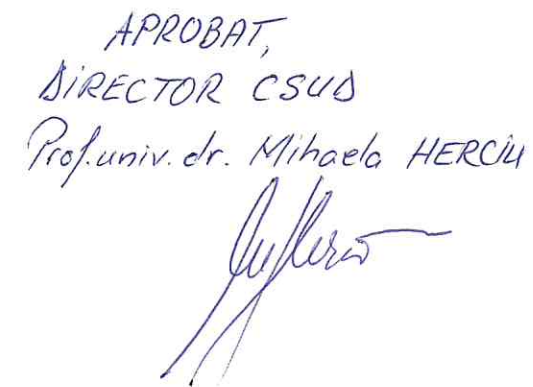 APROBAT,
DIRECTOR CSUD
Prof. univ. dr. Mihaela HERCIU